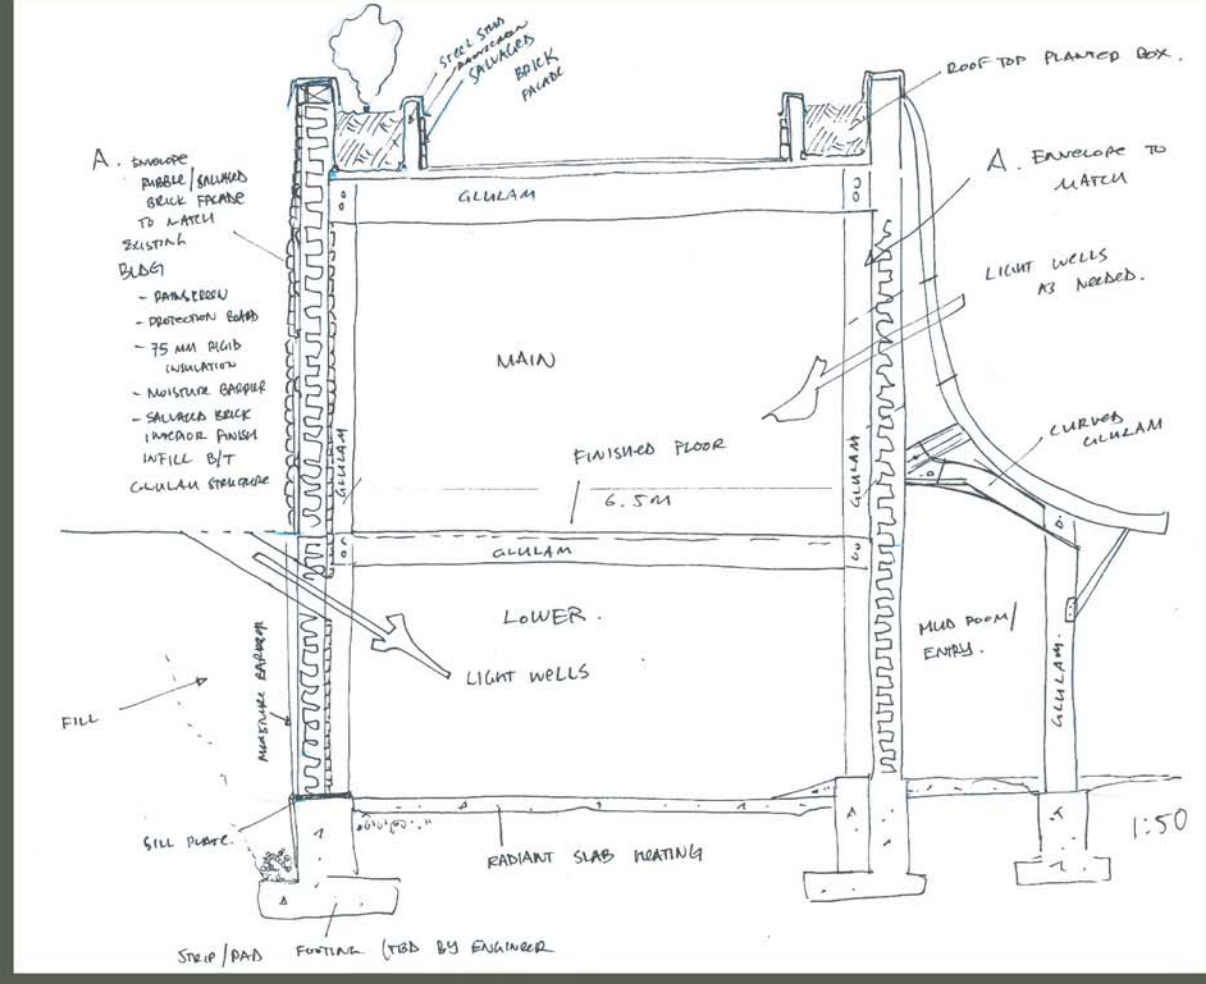 STEEL STUD
RAINSCREEN
SALVAGED
BRICK
FACADE
ROOF TOP PLANTER BOX.
A. ENVELOPE
RUBBLE/SALVAGED
BRICK FACADE
TO MATCH
EXISTING
BLDG
- RAINSCREEN
- PROTECTION BOARD
- 75 MM RIGID
INSULATION
- MOISTURE BARRIER
- SALVAGED BRICK
INTERIOR FINISH
INFILL B/T
GLULAM STRUCTURE
GLULAM
A. ENVELOPE TO
MATCH
LIGHT WELLS
AS NEEDED.
MAIN
CURVED
GLULAM
GLULAM
GLULAM
FINISHED FLOOR
6.5M
GLULAM
LOWER.
MUD ROOM/
ENTRY.
LIGHT WELLS
GLULAM
MOISTURE BARRIER
FILL
SILL PLATE.
RADIANT SLAB HEATING
1:50
STRIP/PAD FOOTING (TBD BY ENGINEER